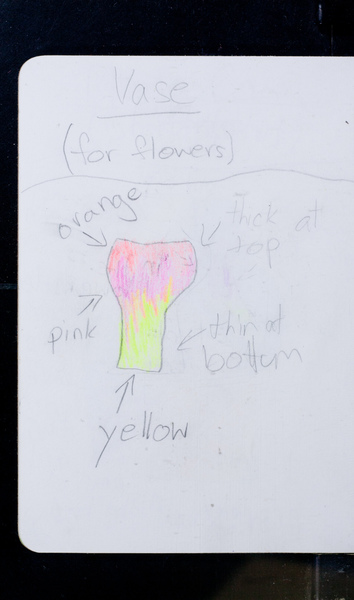 Vase
(for flowers)
orange
thick at
top
pink
thin at
bottom
yellow